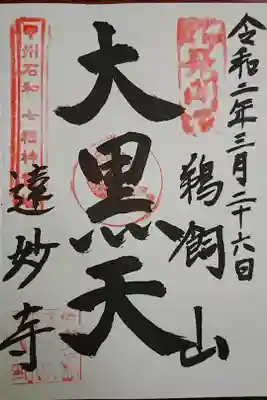 令和二年三月二十六日
鵜飼山
大黒天
甲州石和七福神
遠妙寺